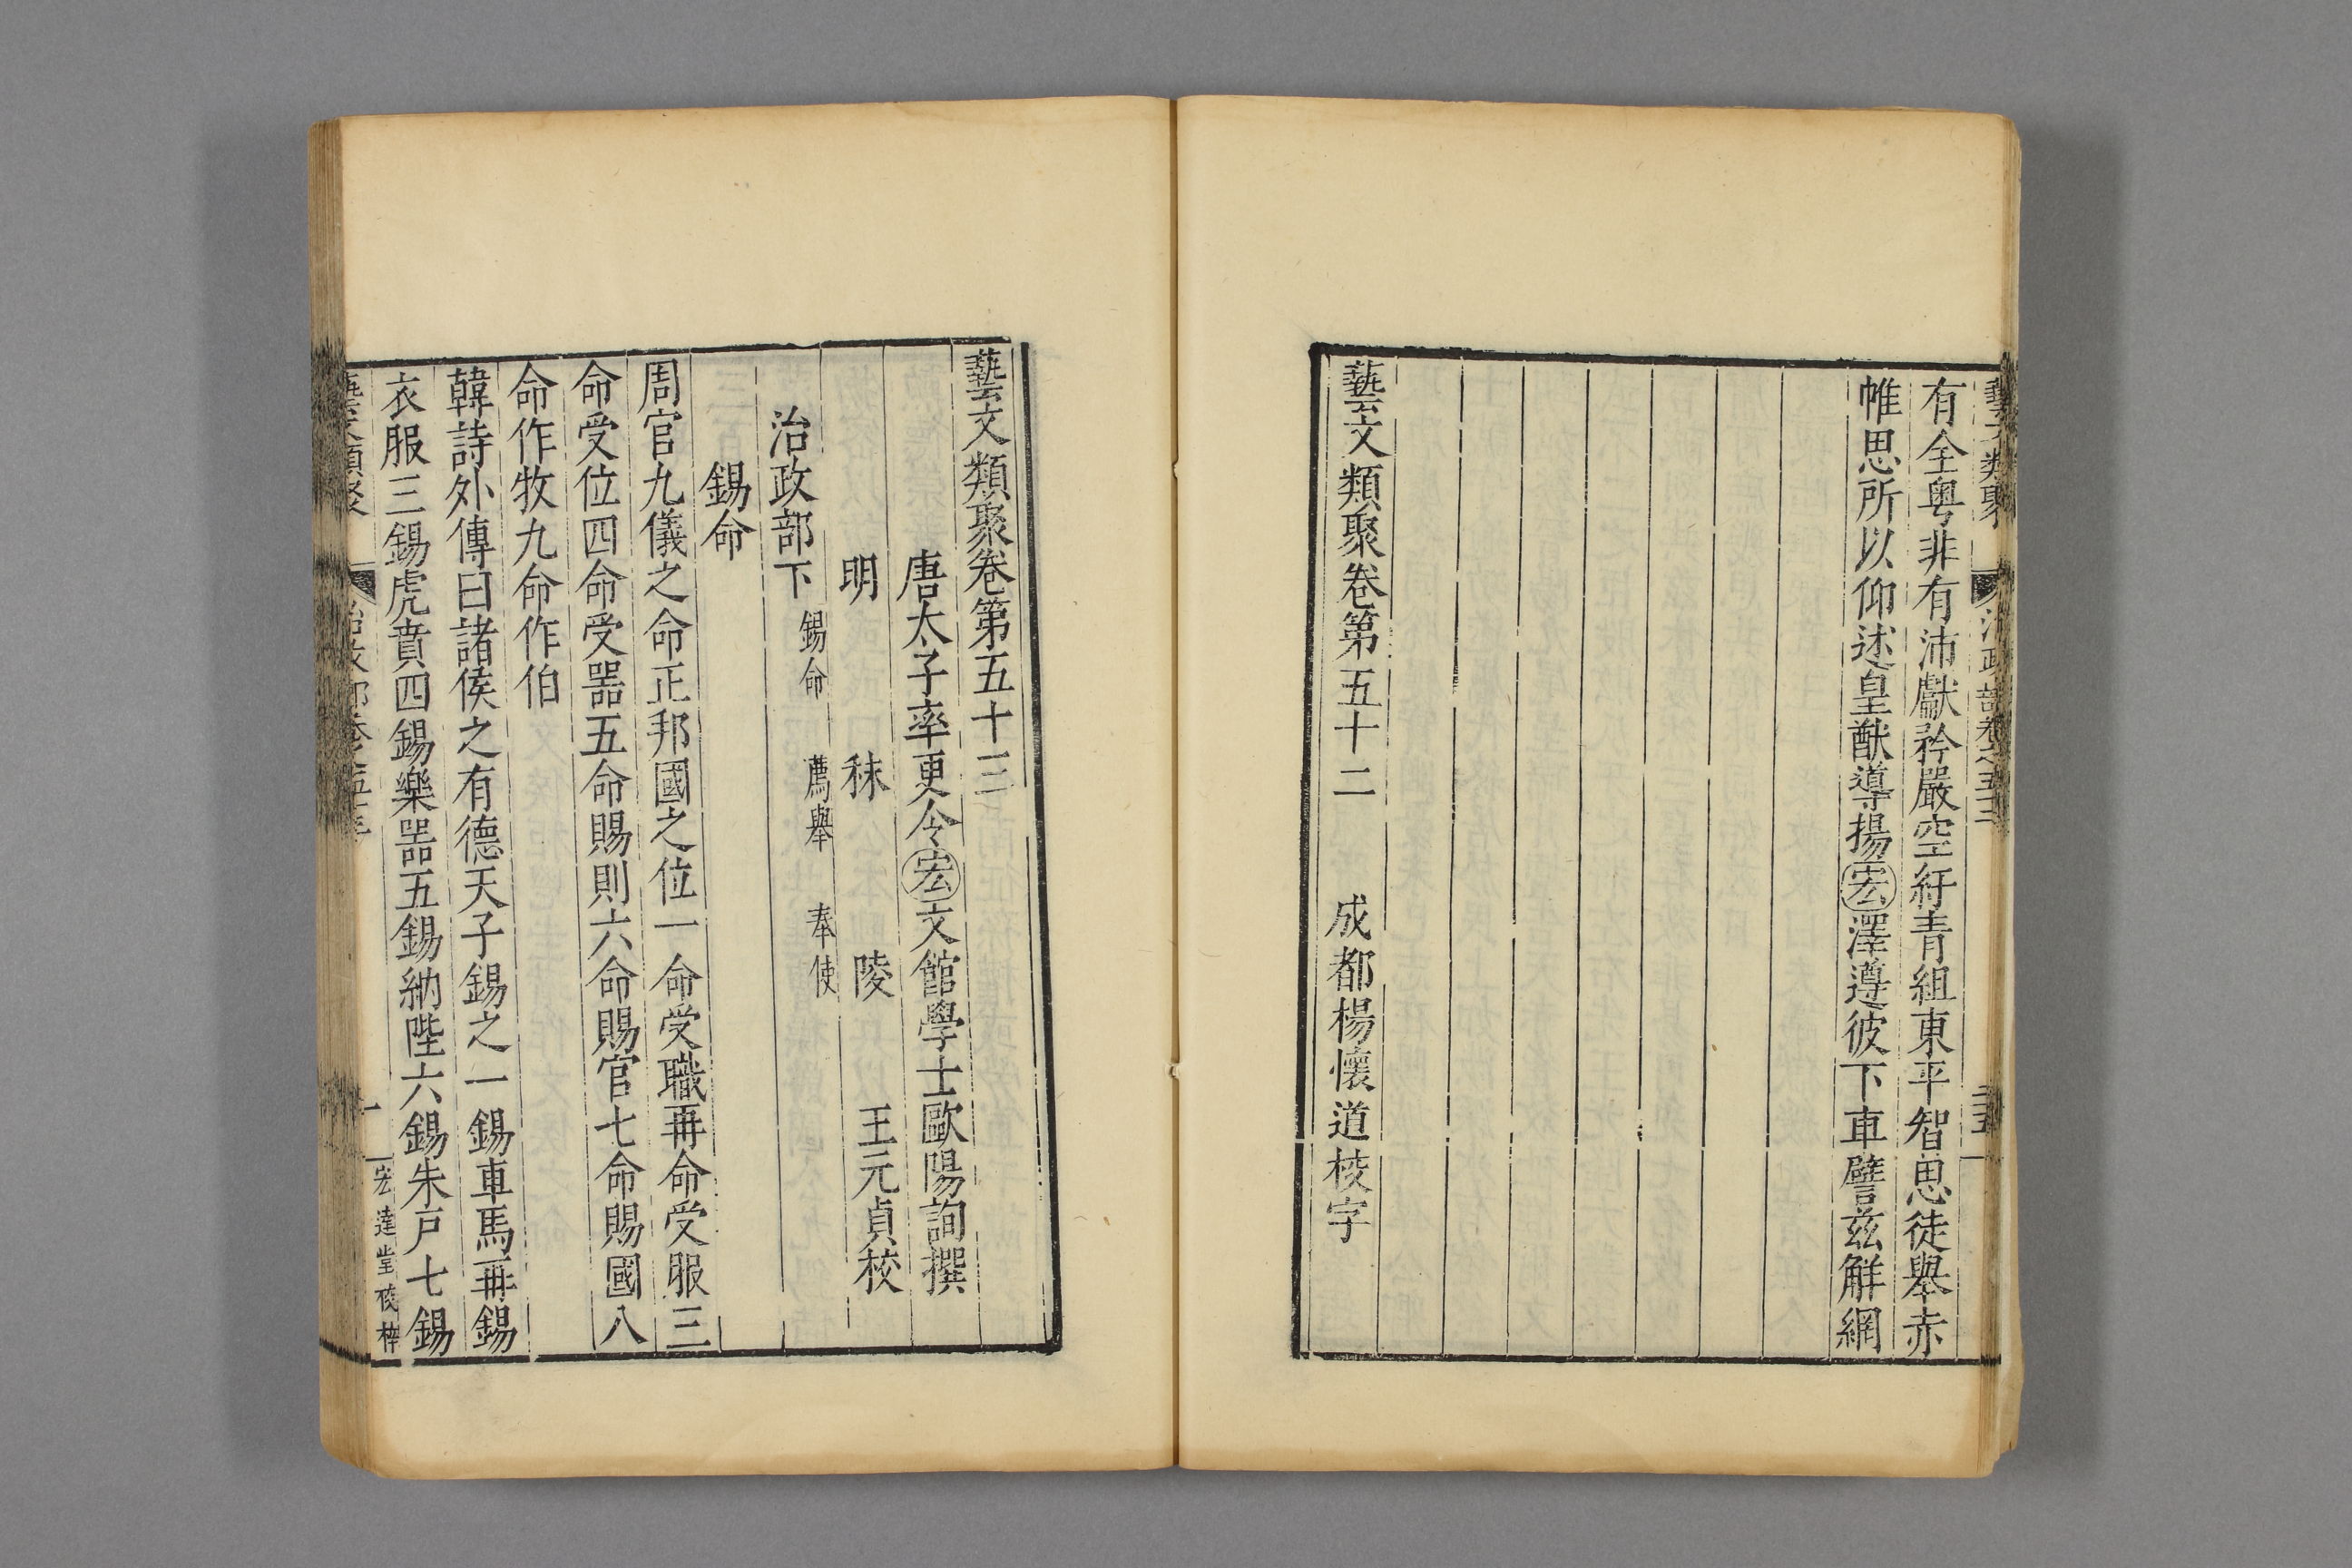 有全粤非有沛獻矜嚴空紆青組東平智思徒舉赤
帷思所以仰述皇猷導揚宏澤遵彼下車譬兹解網
藝文類聚卷第五十二 成都楊懷道校字
藝文類聚卷第五十三
唐太子率更令宏文館學士歐陽詢撰
明 秣陵 王元貞校
治政部下 錫命 薦舉 奉使
錫命
周官九儀之命正邦國之位一命受職再命受服三
命受位四命受噐五命賜則六命賜官七命賜國八
命作牧九命作伯
韓詩外傳曰諸侯之有德天子錫之一錫車馬再錫
衣服三錫虎賁四錫樂噐五錫納陛六錫朱戸七錫
宏達堂校梓